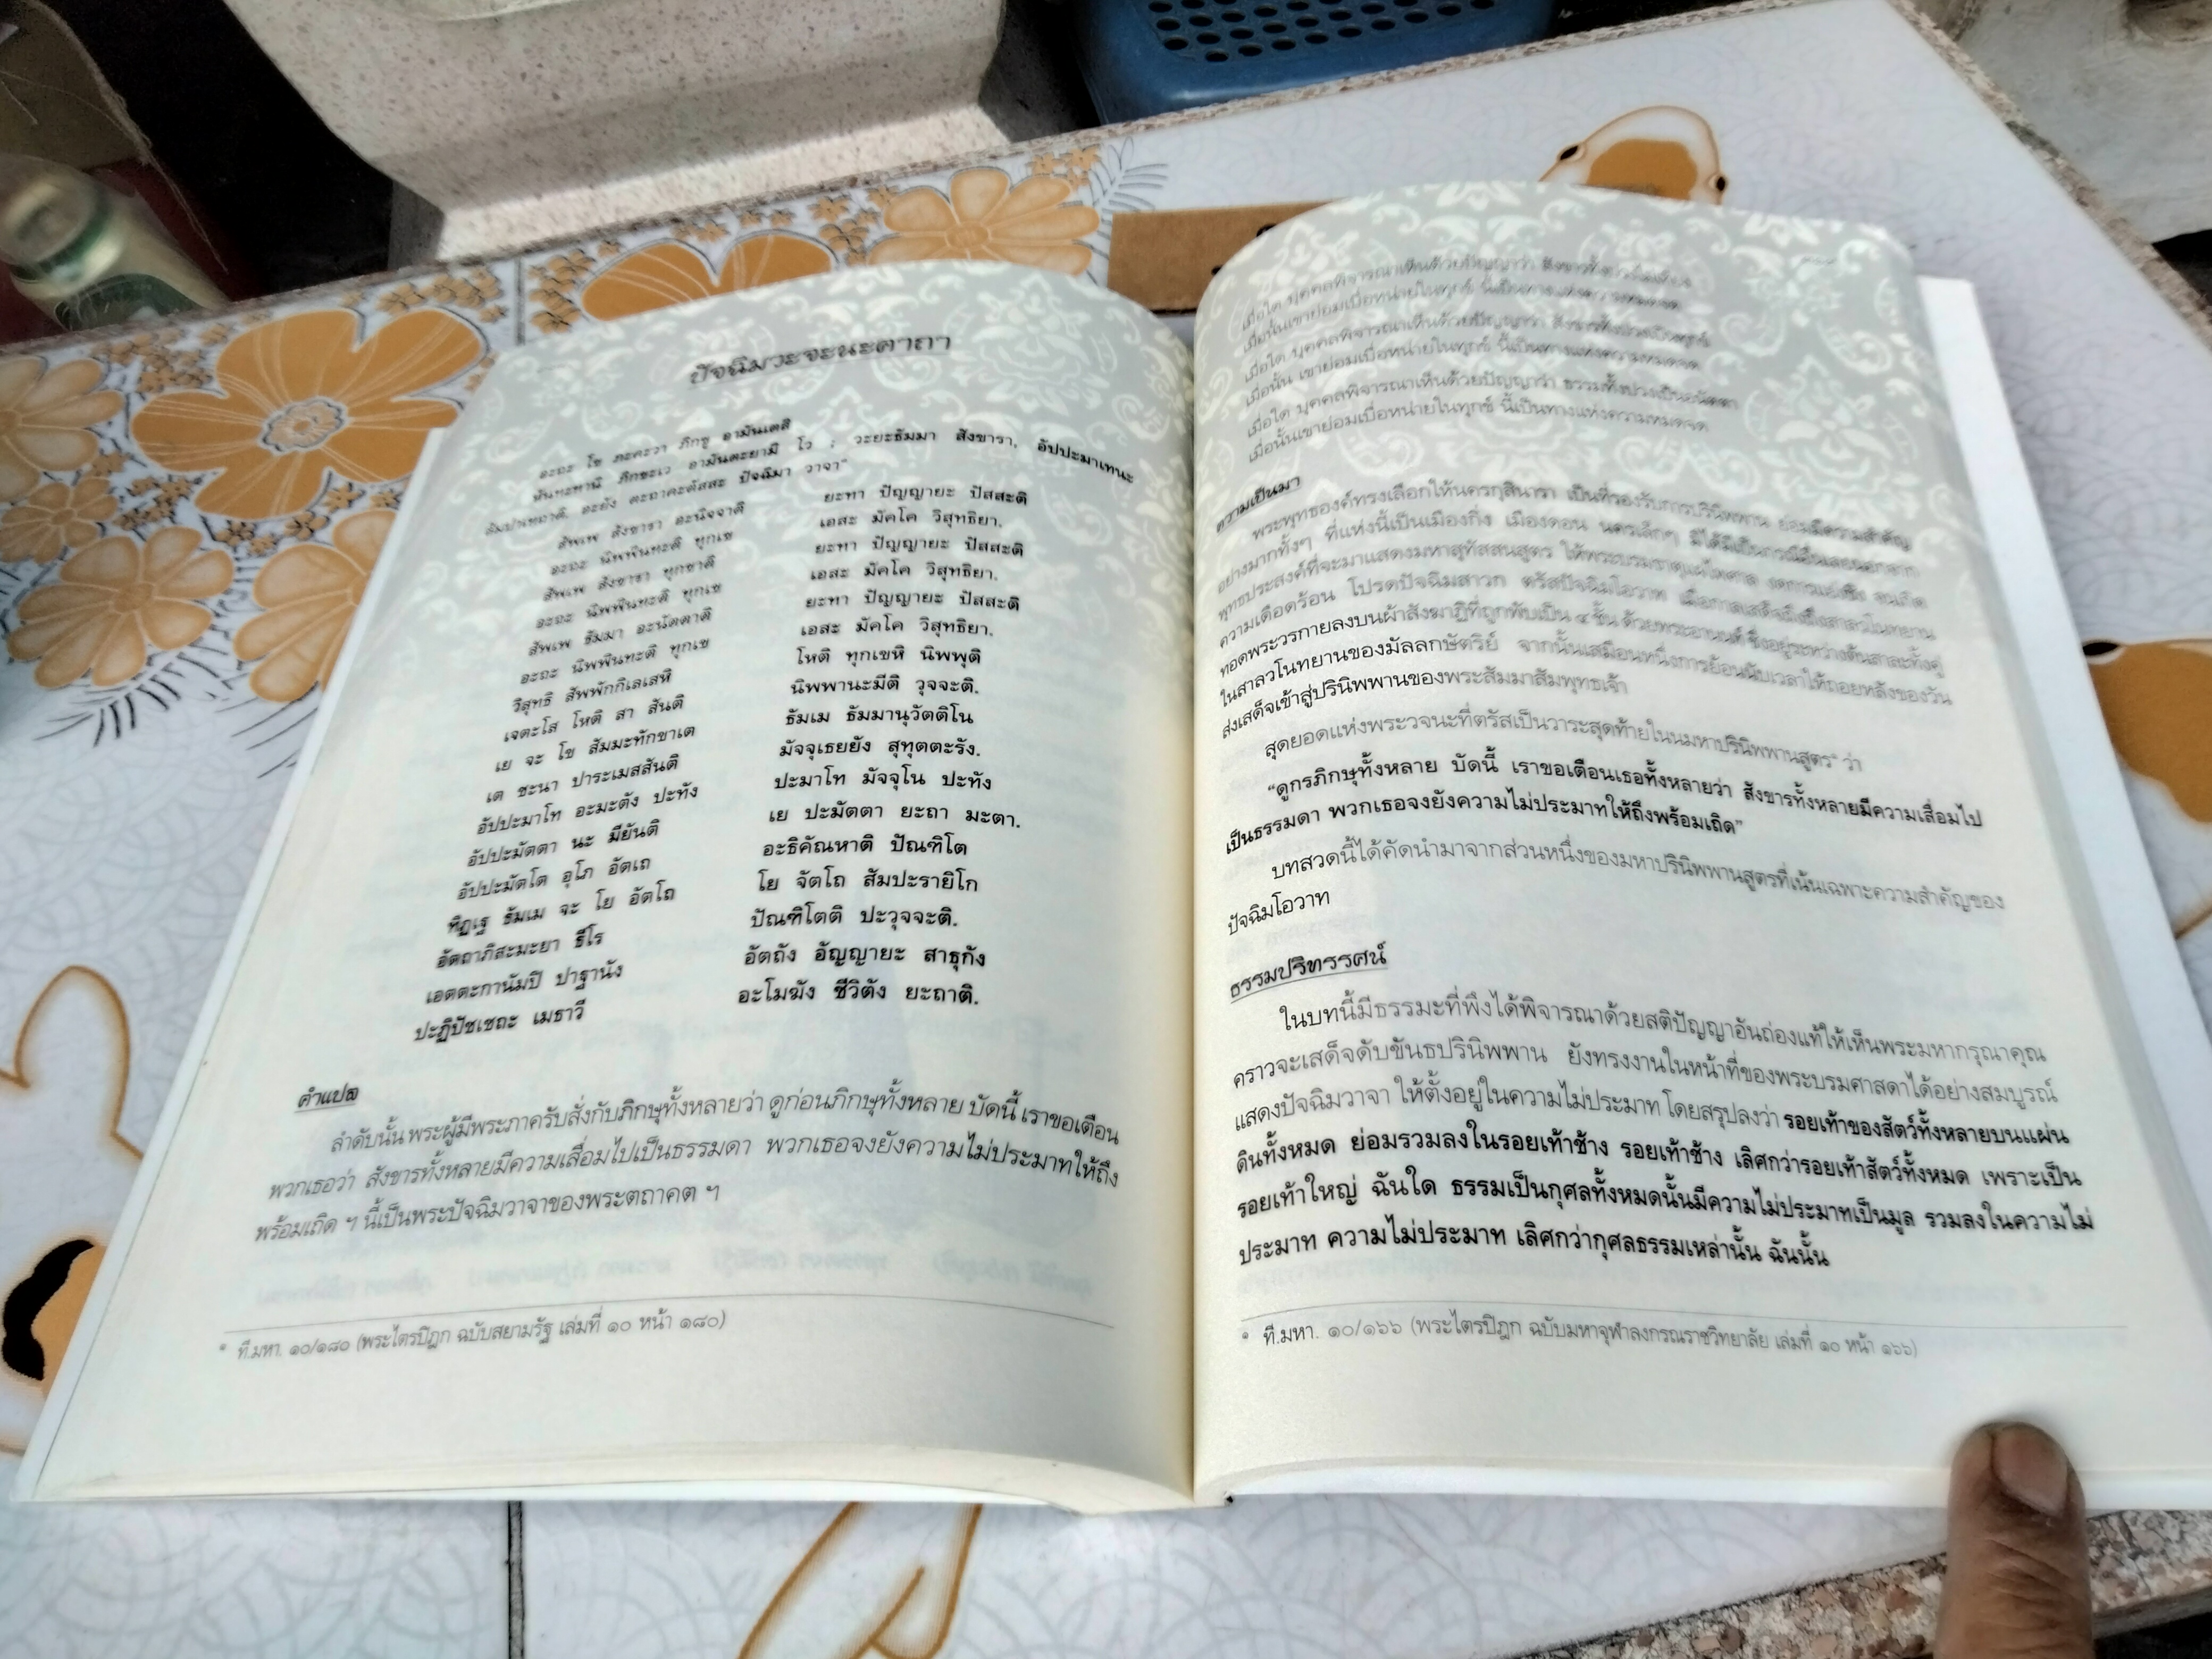 ปัจฉิมวะจะนะคาถา
อะถะ โข ภะคะวา ภิกขู อามันเตสิ
หันทะทานิ ภิกขะเว อามันตะยามิ โว : วะยะธัมมา สังขารา, อัปปะมาเทนะ
สัมปาเทถาติ, อะยัง ตะถาคะตัสสะ ปัจฉิมา วาจา"
สัพเพ สังขารา อะนิจจาติ ยะทา ปัญญายะ ปัสสะติ
อะถะ นิพพินทะติ ทุกเข เอสะ มัคโค วิสุทธิยา.
สัพเพ สังขารา ทุกขาติ ยะทา ปัญญายะ ปัสสะติ
อะถะ นิพพินทะติ ทุกเข เอสะ มัคโค วิสุทธิยา.
สัพเพ ธัมมา อะนัตตาติ ยะทา ปัญญายะ ปัสสะติ
อะถะ นิพพินทะติ ทุกเข เอสะ มัคโค วิสุทธิยา.
วิสุทธิ สัพพักกิเลเสหิ โหติ ทุกเขหิ นิพพุติ
เจตะโส โหติ สา สันติ นิพพานะมีติ วุจจะติ.
เย จะ โข สัมมะทักขาเต ธัมเม ธัมมานุวัตติโน
เต ชะนา ปาระเมสสันติ มัจจุเธยยัง สุทุตตะรัง.
อัปปะมาโท อะมะตัง ปะทัง ปะมาโท มัจจุโน ปะทัง
อัปปะมัตตา นะ มียันติ เย ปะมัตตา ยะถา มะตา.
อัปปะมัตโต อุโภ อัตเถ อะธิคัณหาติ ปัณฑิโต
ทิฏเฐ ธัมเม จะ โย อัตโถ โย จัตโถ สัมปะรายิโก
อัตถาภิสะมะยา ธีโร ปัณฑิโตติ ปะวุจจะติ.
เอตตะกานัมปิ ปาฐานัง อัตถัง อัญญายะ สาธุกัง
ปะฏิปัชเชถะ เมธาวี อะโมฆัง ชีวิตัง ยะถาติ.
คำแปล
ลำดับนั้น พระผู้มีพระภาครับสั่งกับภิกษุทั้งหลายว่า ดูก่อนภิกษุทั้งหลาย บัดนี้ เราขอเตือน
พวกเธอว่า สังขารทั้งหลายมีความเสื่อมไปเป็นธรรมดา พวกเธอจงยังความไม่ประมาทให้ถึง
พร้อมเถิด ฯ นี้เป็นพระปัจฉิมวาจาของพระตถาคต ฯ
ที.มหา. ๑๐/๑๘๐ (พระไตรปิฎก ฉบับสยามรัฐ เล่มที่ ๑๐ หน้า ๑๘๐)
เมื่อใด บุคคลพิจารณาเห็นด้วยปัญญาว่า สังขารทั้งปวงไม่เที่ยง
เมื่อนั้นเขาย่อมเบื่อหน่ายในทุกข์ นี้เป็นทางแห่งความหมดจด
เมื่อใด บุคคลพิจารณาเห็นด้วยปัญญาว่า สังขารทั้งปวงเป็นทุกข์
เมื่อนั้น เขาย่อมเบื่อหน่ายในทุกข์ นี้เป็นทางแห่งความหมดจด
เมื่อใด บุคคลพิจารณาเห็นด้วยปัญญาว่า ธรรมทั้งปวงเป็นอนัตตา
เมื่อนั้นเขาย่อมเบื่อหน่ายในทุกข์ นี้เป็นทางแห่งความหมดจด
ความเป็นมา
พระพุทธองค์ทรงเลือกให้นครกุสินารา เป็นที่รองรับการปรินิพพาน ย่อมมีความสำคัญ
อย่างมากทั้งๆ ที่แห่งนี้เป็นเมืองกิ่ง เมืองดอน นครเล็กๆ มิได้มีเป็นการมีอื่นเลยนอกจาก
พุทธประสงค์ที่จะมาแสดงมหาสุทัสสนสูตร ให้พระบรมธาตุแผ่ไพศาล งดการแย่งชิง จนเกิด
ความเดือดร้อน โปรดปัจฉิมสาวก ตรัสปัจฉิมโอวาท เมื่อกาลเสด็จถึงซึ่งสาลวโนทยาน
ทอดพระวรกายลงบนผ้าสังฆาฏิที่ถูกพับเป็น ๔ ชั้น ด้วยพระอานนท์ ซึ่งอยู่ระหว่างต้นสาละทั้งคู่
ในสาลวโนทยานของมัลลกษัตริย์ จากนั้นเสมือนหนึ่งการย้อนนับเวลาให้ถอยหลังของวัน
ส่งเสด็จเข้าสู่ปรินิพพานของพระสัมมาสัมพุทธเจ้า
สุดยอดแห่งพระวจนะที่ตรัสเป็นวาระสุดท้ายในนมหาปรินิพพานสูตร° ว่า
"ดูกรภิกษุทั้งหลาย บัดนี้ เราขอเตือนเธอทั้งหลายว่า สังขารทั้งหลายมีความเสื่อมไป
เป็นธรรมดา พวกเธอจงยังความไม่ประมาทให้ถึงพร้อมเถิด"
บทสวดนี้ได้คัดนำมาจากส่วนหนึ่งของมหาปรินิพพานสูตรที่เน้นเฉพาะความสำคัญของ
ปัจฉิมโอวาท
ธรรมปริทรรศน์
ในบทนี้มีธรรมะที่พึงได้พิจารณาด้วยสติปัญญาอันถ่องแท้ให้เห็นพระมหากรุณาคุณ
คราวจะเสด็จดับขันธปรินิพพาน ยังทรงงานในหน้าที่ของพระบรมศาสดาได้อย่างสมบูรณ์
แสดงปัจฉิมวาจา ให้ตั้งอยู่ในความไม่ประมาท โดยสรุปลงว่า รอยเท้าของสัตว์ทั้งหลายบนแผ่น
ดินทั้งหมด ย่อมรวมลงในรอยเท้าช้าง รอยเท้าช้าง เลิศกว่ารอยเท้าสัตว์ทั้งหมด เพราะเป็น
รอยเท้าใหญ่ ฉันใด ธรรมเป็นกุศลทั้งหมดนั้นมีความไม่ประมาทเป็นมูล รวมลงในความไม่
ประมาท ความไม่ประมาท เลิศกว่ากุศลธรรมเหล่านั้น ฉันนั้น
๑ ที.มหา. ๑๐/๑๖๖ (พระไตรปิฎก ฉบับมหาจุฬาลงกรณราชวิทยาลัย เล่มที่ ๑๐ หน้า ๑๖๖)